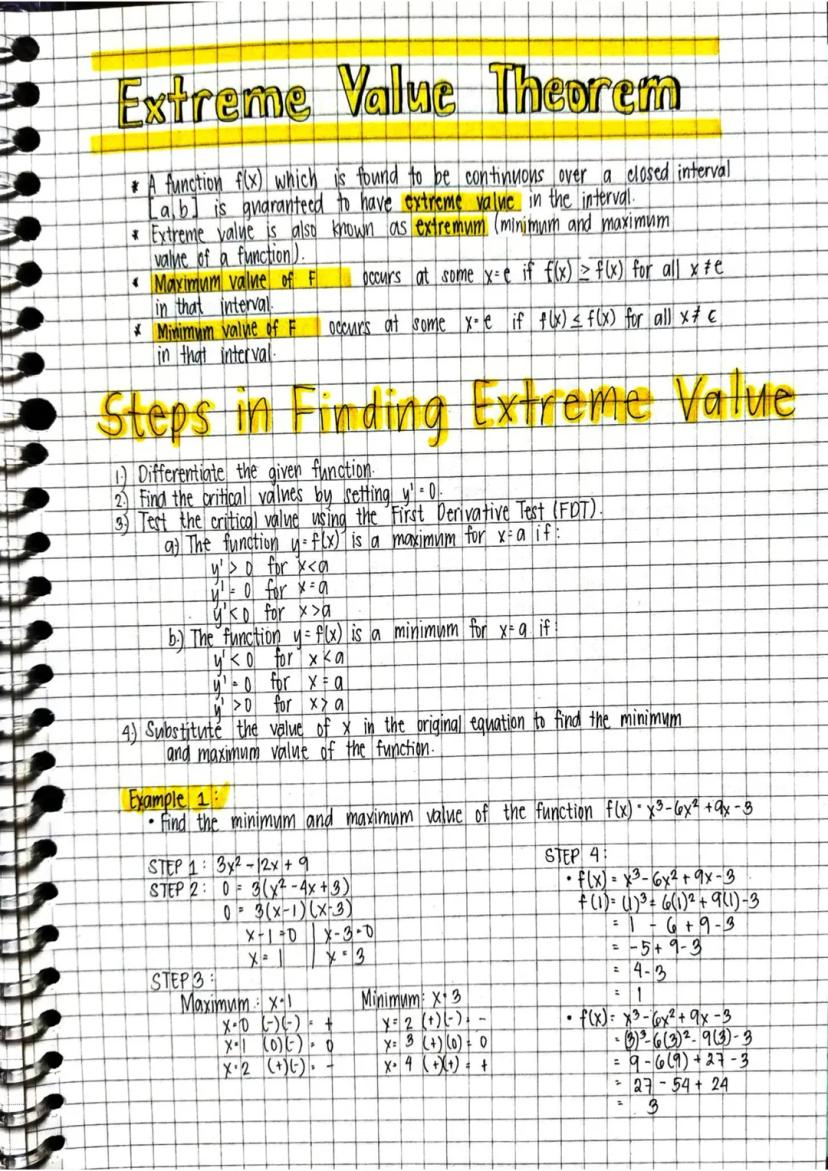 Extreme Value Theorem
* A function f(x) which is found to be continuous over a closed interval
[a,b] is guaranteed to have extreme value in the interval.
* Extreme value is also known as extremum (minimum and maximum
value of a function).
* Maximum value of F occurs at some x=e if f(x) ≥ f(x) for all x≠e
in that interval.
* Minimum value of F occurs at some x=e if f(x) ≤ f(x) for all x≠c
in that interval.
Steps in Finding Extreme Value
1.) Differentiate the given function.
2.) Find the critical values by setting y'=0.
3.) Test the critical value using the First Derivative Test (FDT).
a.) The function y=f(x) is a maximum for x=a if:
y' > 0 for x<a
y' = 0 for x=a
y' < 0 for x>a
b.) The function y=f(x) is a minimum for x=a if:
y' < 0 for x<a
y' = 0 for x=a
y' > 0 for x>a
4.) Substitute the value of x in the original equation to find the minimum
and maximum value of the function.
Example 1:
• Find the minimum and maximum value of the function f(x) = x³-6x²+9x-3
STEP 1: 3x²-12x+9
STEP 2: 0 = 3(x²-4x+3)
0 = 3(x-1)(x-3)
x-1=0 | x-3=0
x=1 | x=3
STEP 3:
Maximum: x=1 Minimum: x=3
x=0 (-)(-) = + x=2 (+)(-) = -
x=1 (0)(-) = 0 x=3 (+)(0) = 0
x=2 (+)(-) = - x=4 (+)(+) = +
STEP 4:
• f(x) = x³-6x²+9x-3
f(1) = (1)³ 6(1)²+9(1)-3
= 1 - 6 + 9 - 3
= -5+9-3
= 4-3
= 1
• f(x) = x³-6x²+9x-3
= (3)³-6(3)²-9(3)-3
= 9-6(9)+27-3
= 27-54+24
= 3